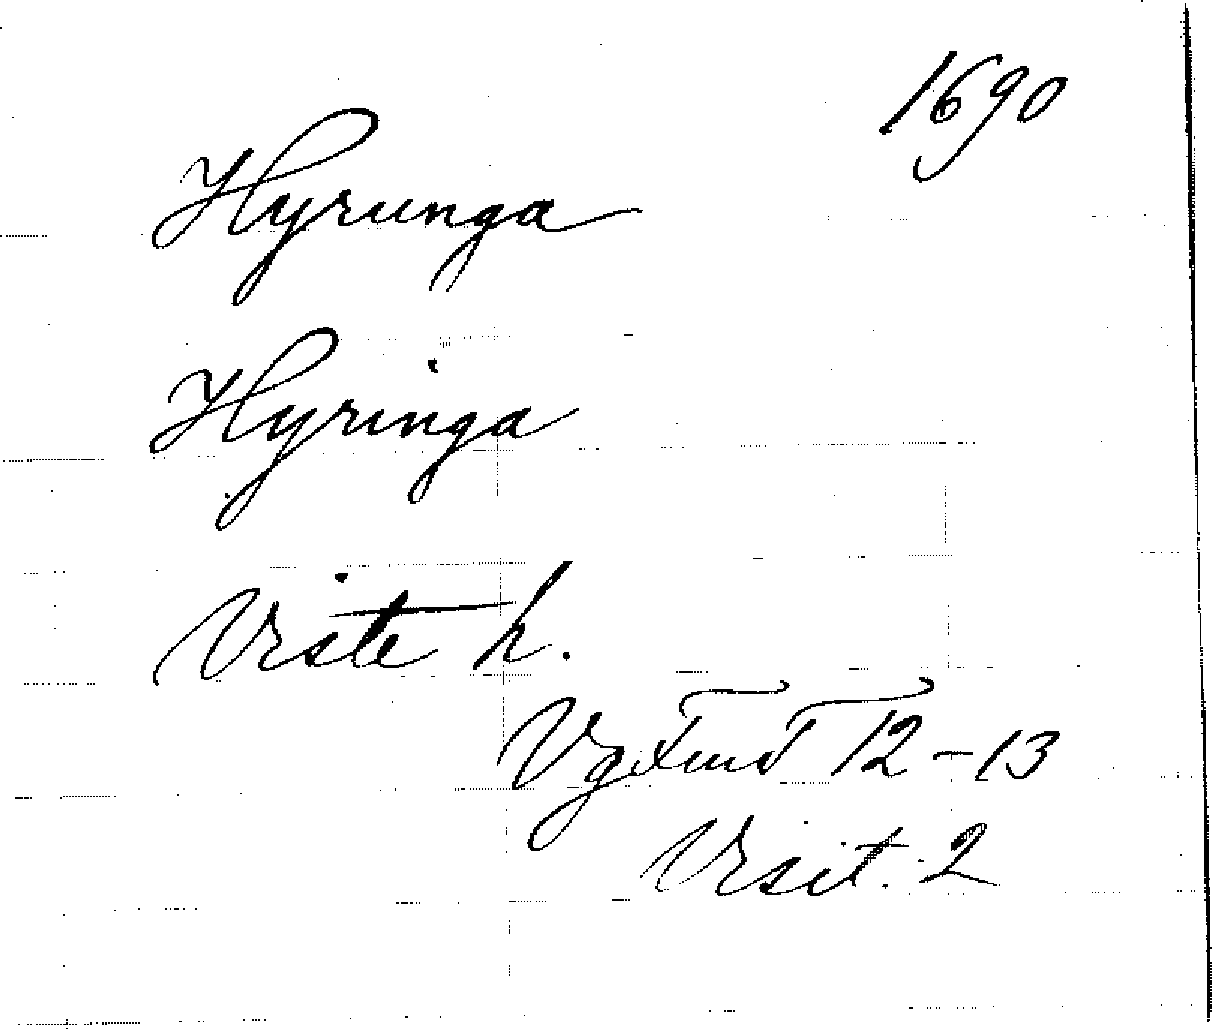 1690
Hyrunga
Hyringa
Viste h.
Vg FmT 12-13
Visit. 2